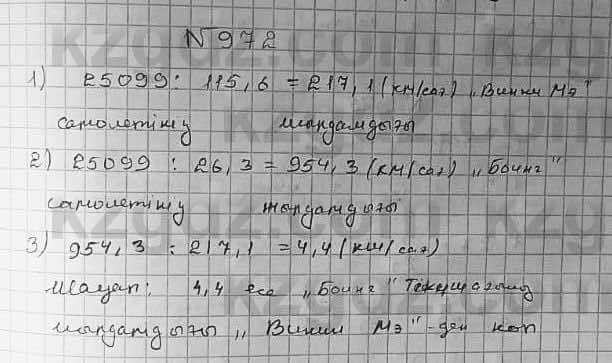 N972
1) 25099 : 115,6 = 217,1 (км/сағ) „Винни Мэ"
самолетінің жылдамдығы
2) 25099 : 26,3 = 954,3 (км/сағ) „Боинг"
самолетінің жылдамдығы
3) 954,3 : 217,1 = 4,4 (км/сағ)
Жауап: 4,4 есе „Боинг"
жылдамдығы „Винни Мэ"-ден көп